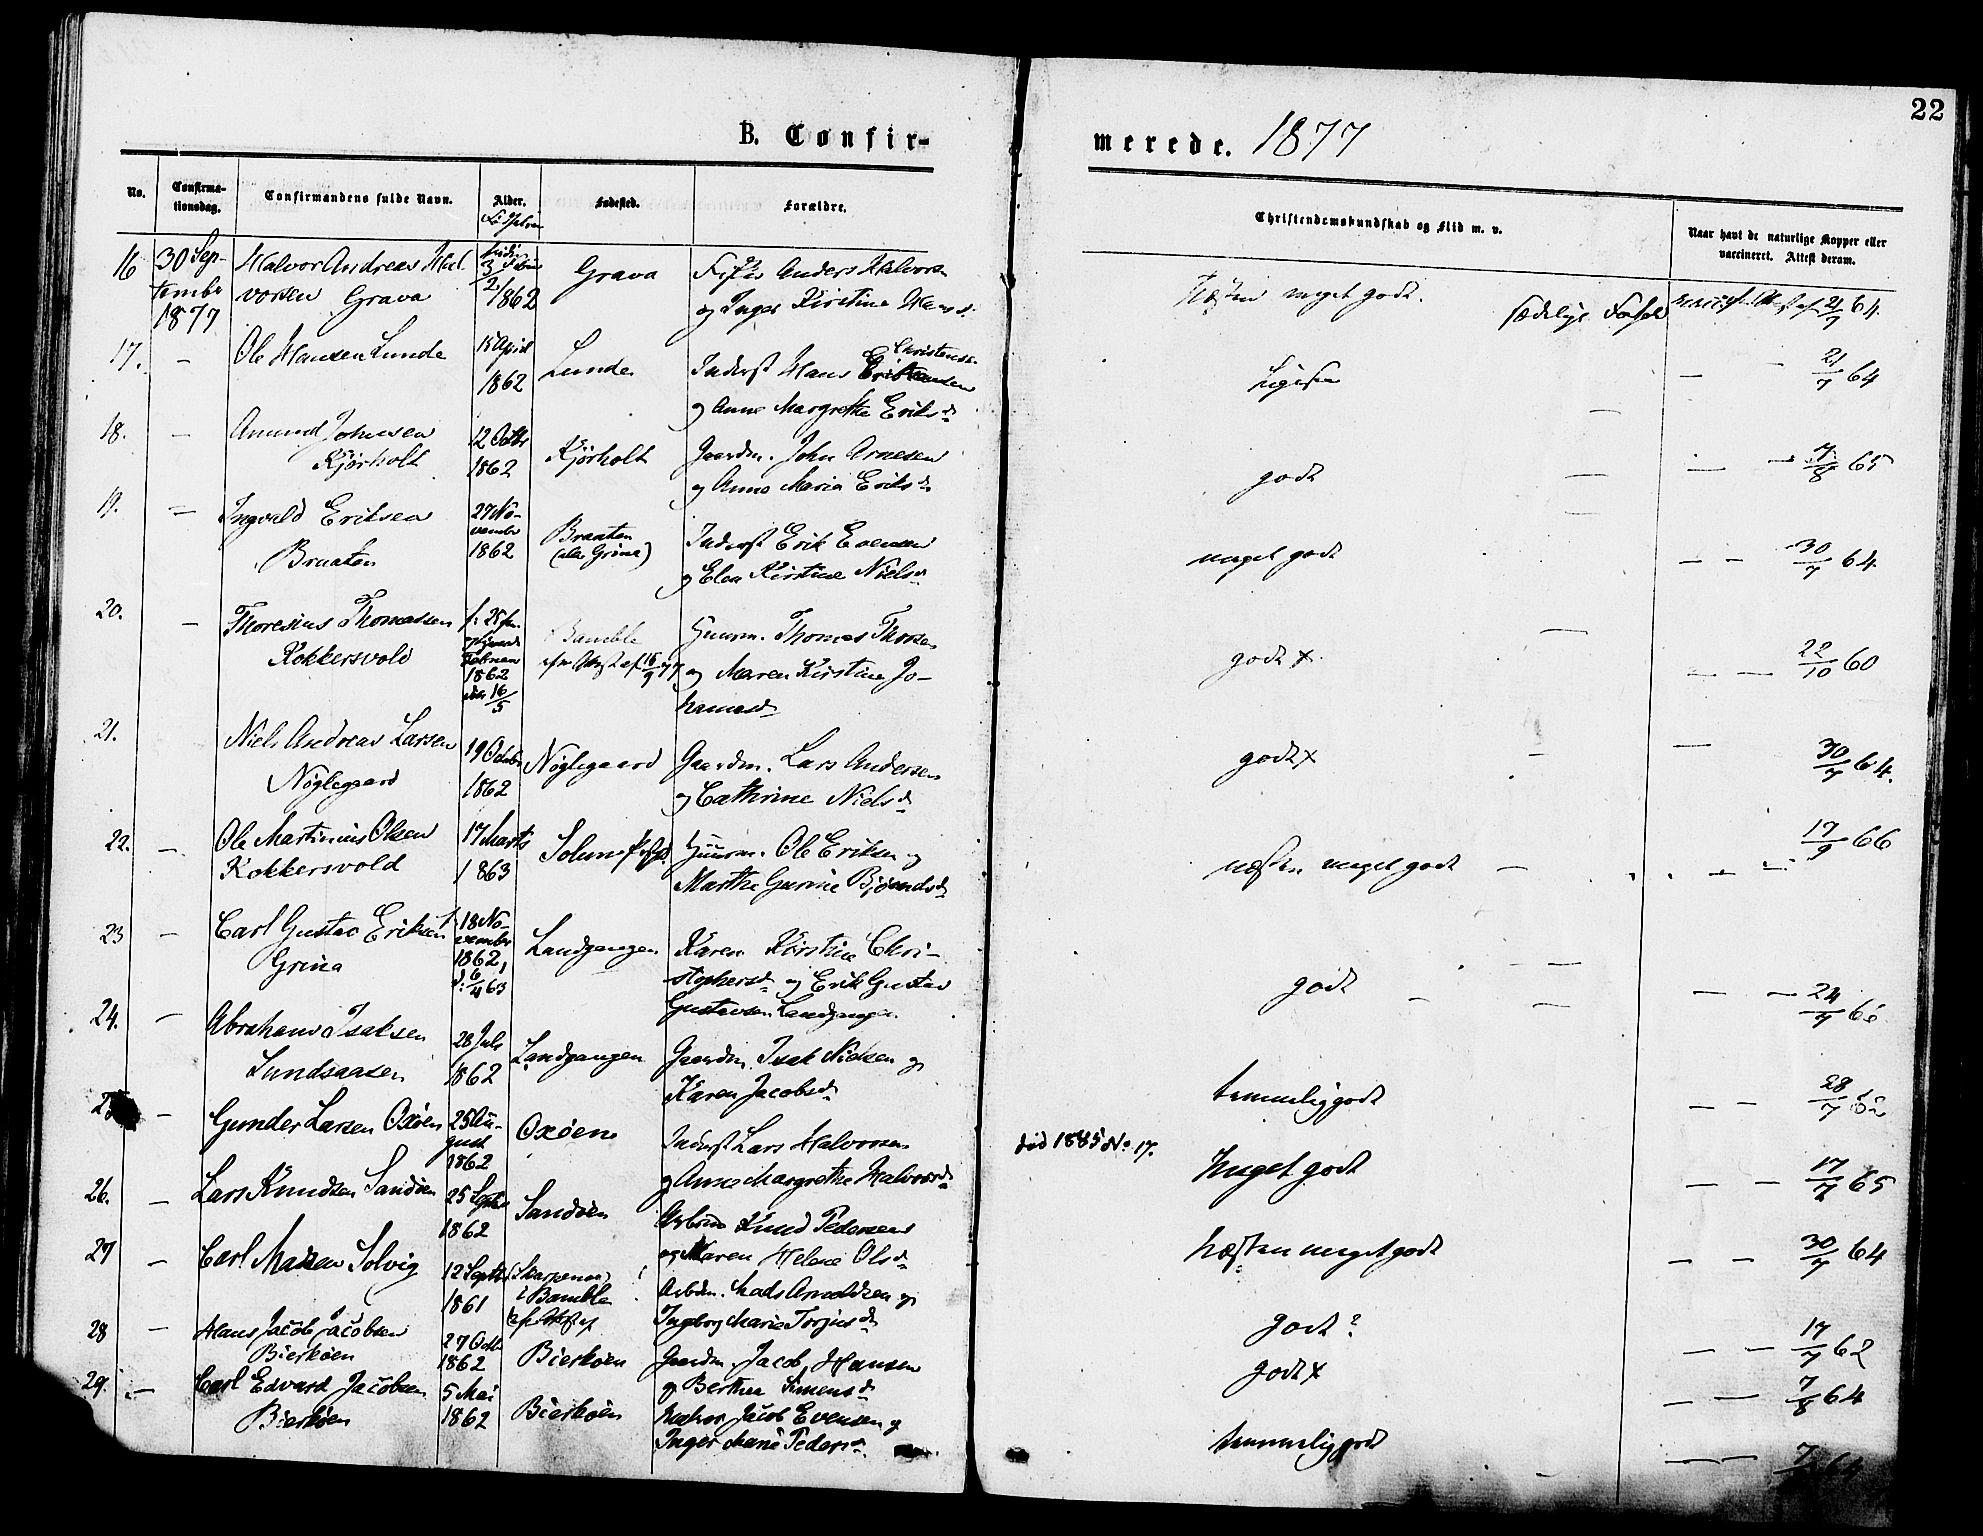 22
B. Confir-
merede. 1877
No.
Confirma-
tionsdag.
Confirmandens fulde Navn.
Alder.
Fødested.
Forældre.
Christendomskundskab og Flid m. v.
Naar havt de naturlige Kopper eller
vaccineret. Attest derom.
16 30 Sep-
tembr
1877
Halvor Andreas Hal
vorsen Grava
1862
Grava
Anders Halvors
og Inger Kirstine Hans d.
Næsten meget godt.
21/7 64.
17. — Ole Hansen Lunde
15 April
1862
Lunde
Inderst Hans
Christens
og Anne Margrethe Eriks d.
Ligesaa
21/7 64
18. — Amund Johnsen
Kjørholt
12 Octbr
1862
Kjørholt
Gaardm. John Arnesen
og Anne Maria Eriks d.
godt
7/8 65
19. — Ingvald Eriksen
Braaten
27 No-
vembr
1862
Braaten
Inderst Erik Evensen
og Elen Kirstine Niels d.
meget godt
30/7 64.
20. — Thoresius Thomassen
Kokkersvold
1862
16/5
Bamble
Huusm. Thomas Thores
og Maren Kirstine Jo-
hannesd.
godt x.
22/10 60
21. Niels Andreas Larsen
Nøglegaard
19 Octobr
1862
Nøglegaard
Gaardm. Lars Andersen
og Cathrine Niels d.
godt x
30/7 64.
22. — Ole Martinius Olsen
Kokkersvold
17 Marts
1863
Solum
Huusm. Ole Eriksen og
Marthe Gurine Bjørnds d.
næsten meget godt
17/9 66
23 — Carl Gustav Eriksen
Grina
f. 18 No-
vember
1862,
d. 6/4 63
Landgangen
Karen Kirstine Chri-
stophersd. og Erik Gustav
Gustavsen Landgangen
godt
24. — Abraham Isaksen
Lundsaasen
28 Juli
1862
Landgangen
Gaardm. Isak Nielsen og
Karen Jacobsd.
temmelig godt
28/7
— Gunder Larsen Oxøen
25 Au-
gust
1862
Oxøen
Inderst Lars Halvorsen
og Anne Margrethe Halvorsd.
død 1885 No. 17.
Meget godt
17/7 65
26. — Lars Knudsen Sandøen
25 Septbr
1862
Sandøen
Arbm Knud Pedersen
og Maren Helene Ols d.
næsten meget godt
30/7 64
27 — Carl Madsen Solvig
12 Septbr
1861
i Bamble
Arbdm. Mads Arnoldsen og
Ingeborg Marie Torjus d.
godt?
17/7 62
28 — Hans Jacob Jacobsen
Bierkøen
27 Octb
1862
Bierkøen
Gaardm. Jacob Hansen
og Berthe Simens d.
godt x
7/8 64
29. — Carl Edvard Jacobsen
Bierkøen
5 Mai
1862
Bierkøen
Jacob Evensen og
Inger Marie Peders d.
temmelig godt